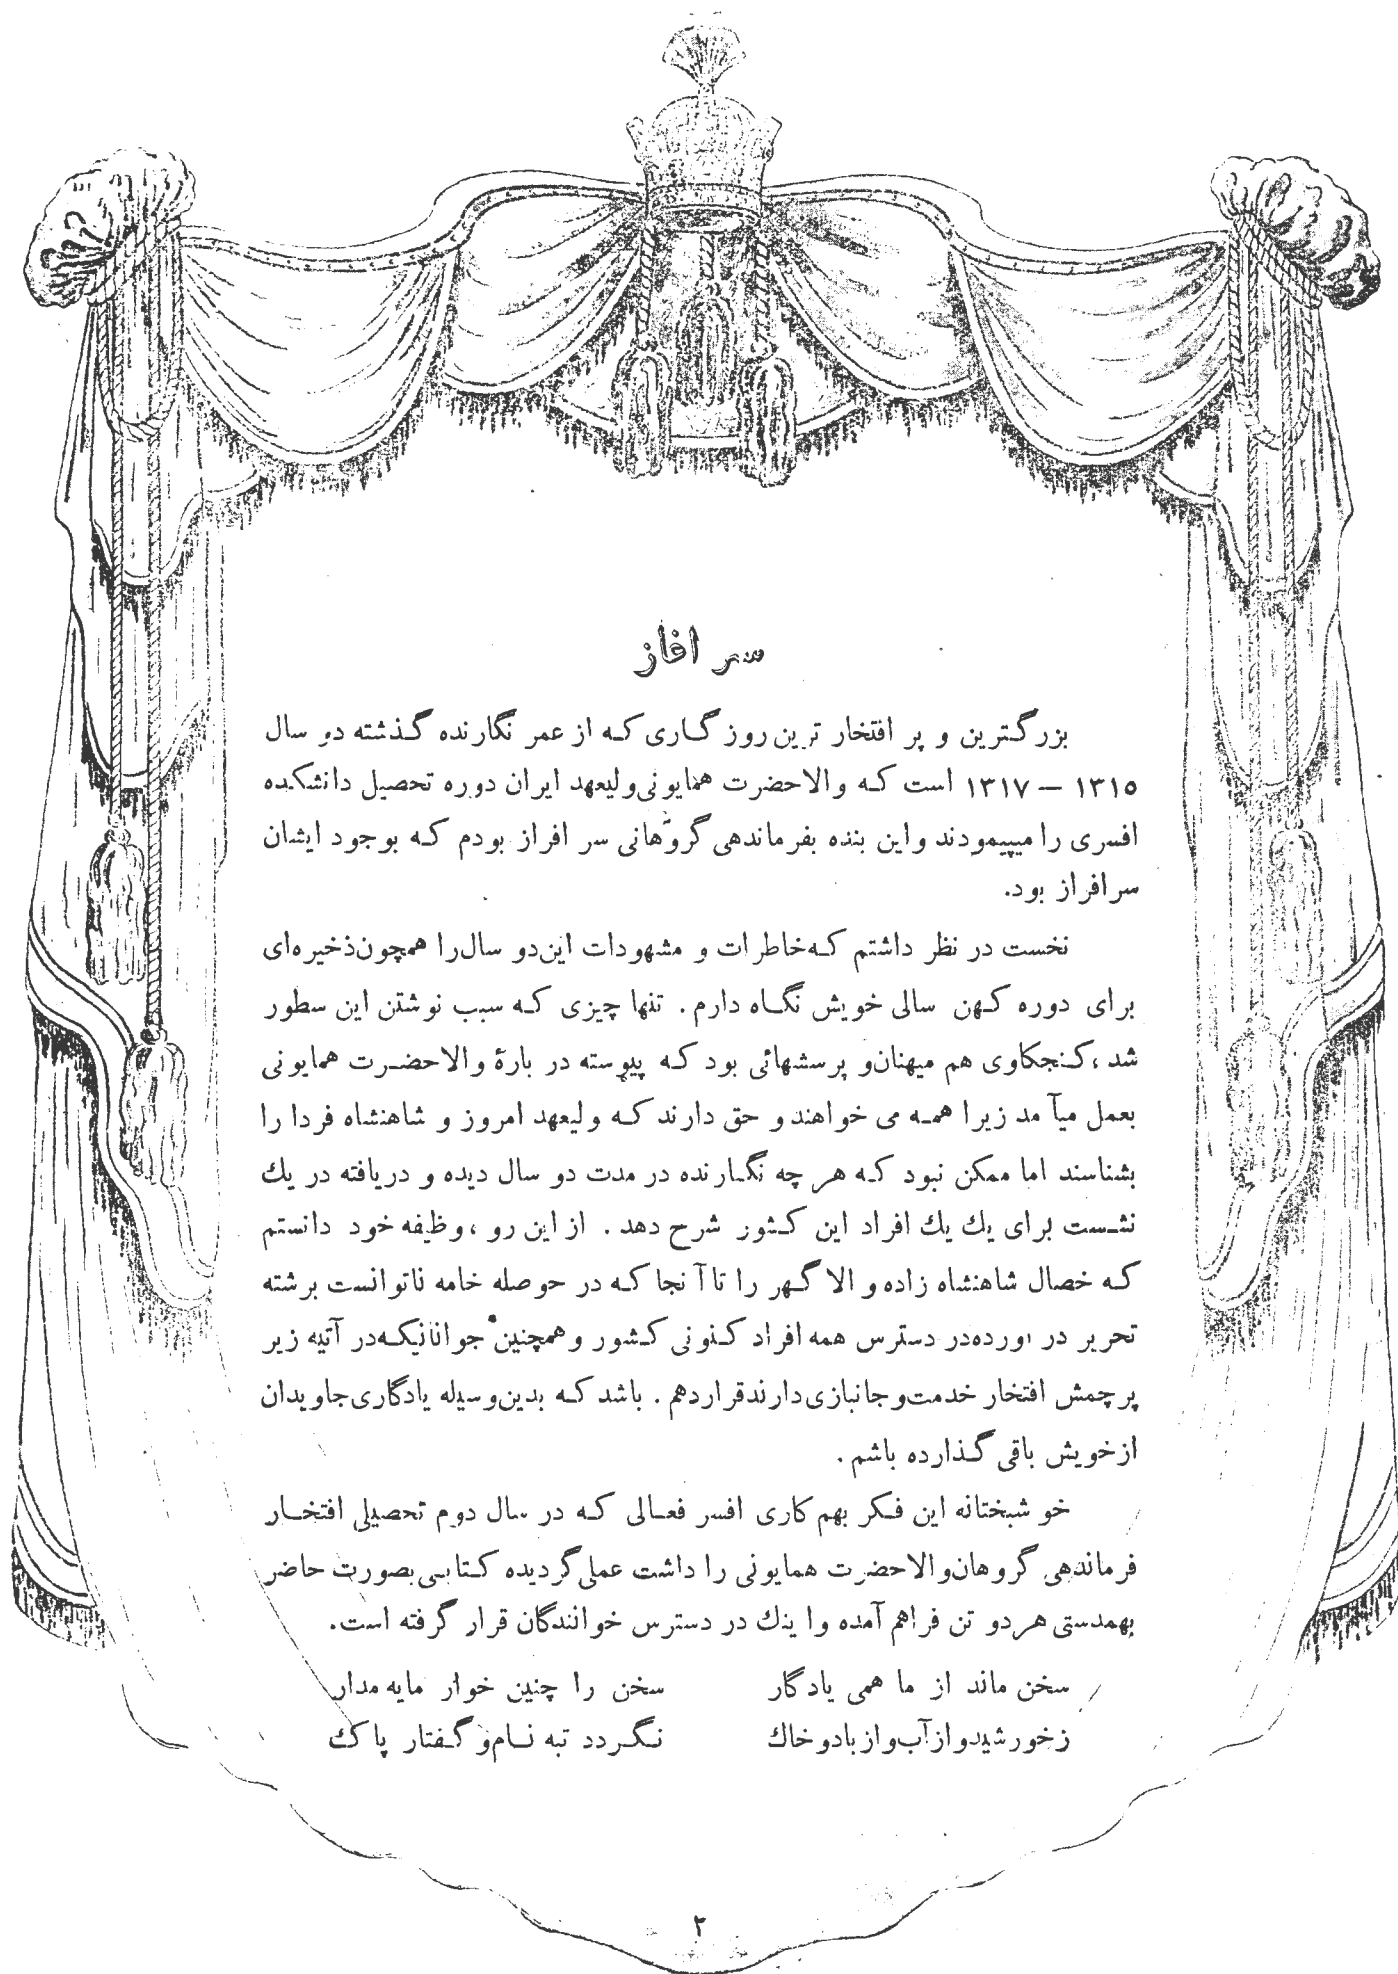 سر افاز
بزرگترین و پر افتخار ترین روز گاری که از عمر نگارنده گذشته دو سال
۱۳۱۵ – ۱۳۱۷ است که والاحضرت همایونی ولیعهد ایران دوره تحصیل دانشکده
افسری را میپیمودند و این بنده بفرماندهی گروهانی سر افراز بودم که بوجود ایشان
سرافراز بود.
نخست در نظر داشتم که خاطرات و مشهودات این دو سال را همچون ذخیره‌ای
برای دوره کهن سالی خویش نگاه دارم . تنها چیزی که سبب نوشتن این سطور
شد، کنجکاوی هم میهنان و پرسشهائی بود که پیوسته در بارهٔ والاحضرت همایونی
بعمل میآمد زیرا همه می خواهند و حق دارند که ولیعهد امروز و شاهنشاه فردا را
بشناسند اما ممکن نبود که هر چه نگارنده در مدت دو سال دیده و دریافته در یك
نشست برای یك یك افراد این کشور شرح دهد . از این رو ، وظیفه خود دانستم
که خصال شاهنشاه زاده والا گهر را تا آنجا که در حوصله خامه ناتوانست برشته
تحریر در اورده در دسترس همه افراد کنونی کشور و همچنین جوانانیکه در آتیه زیر
پرچمش افتخار خدمت و جانبازی دارند قرار دهم . باشد که بدین وسیله یادگاری جاویدان
از خویش باقی گذارده باشم .
خوشبختانه این فکر بهم کاری افسر فعالی که در سال دوم تحصیلی افتخار
فرماندهی گروهان والاحضرت همایونی را داشت عملی گردیده کتابی بصورت حاضر
بهمدستی هر دو تن فراهم آمده و اینك در دسترس خوانندگان قرار گرفته است.
سخن ماند از ما همی یادگار    سخن را چنین خوار مایه مدار
ز خورشید و از آب و از باد و خاك    نگردد تبه نام و گفتار پاك
۲